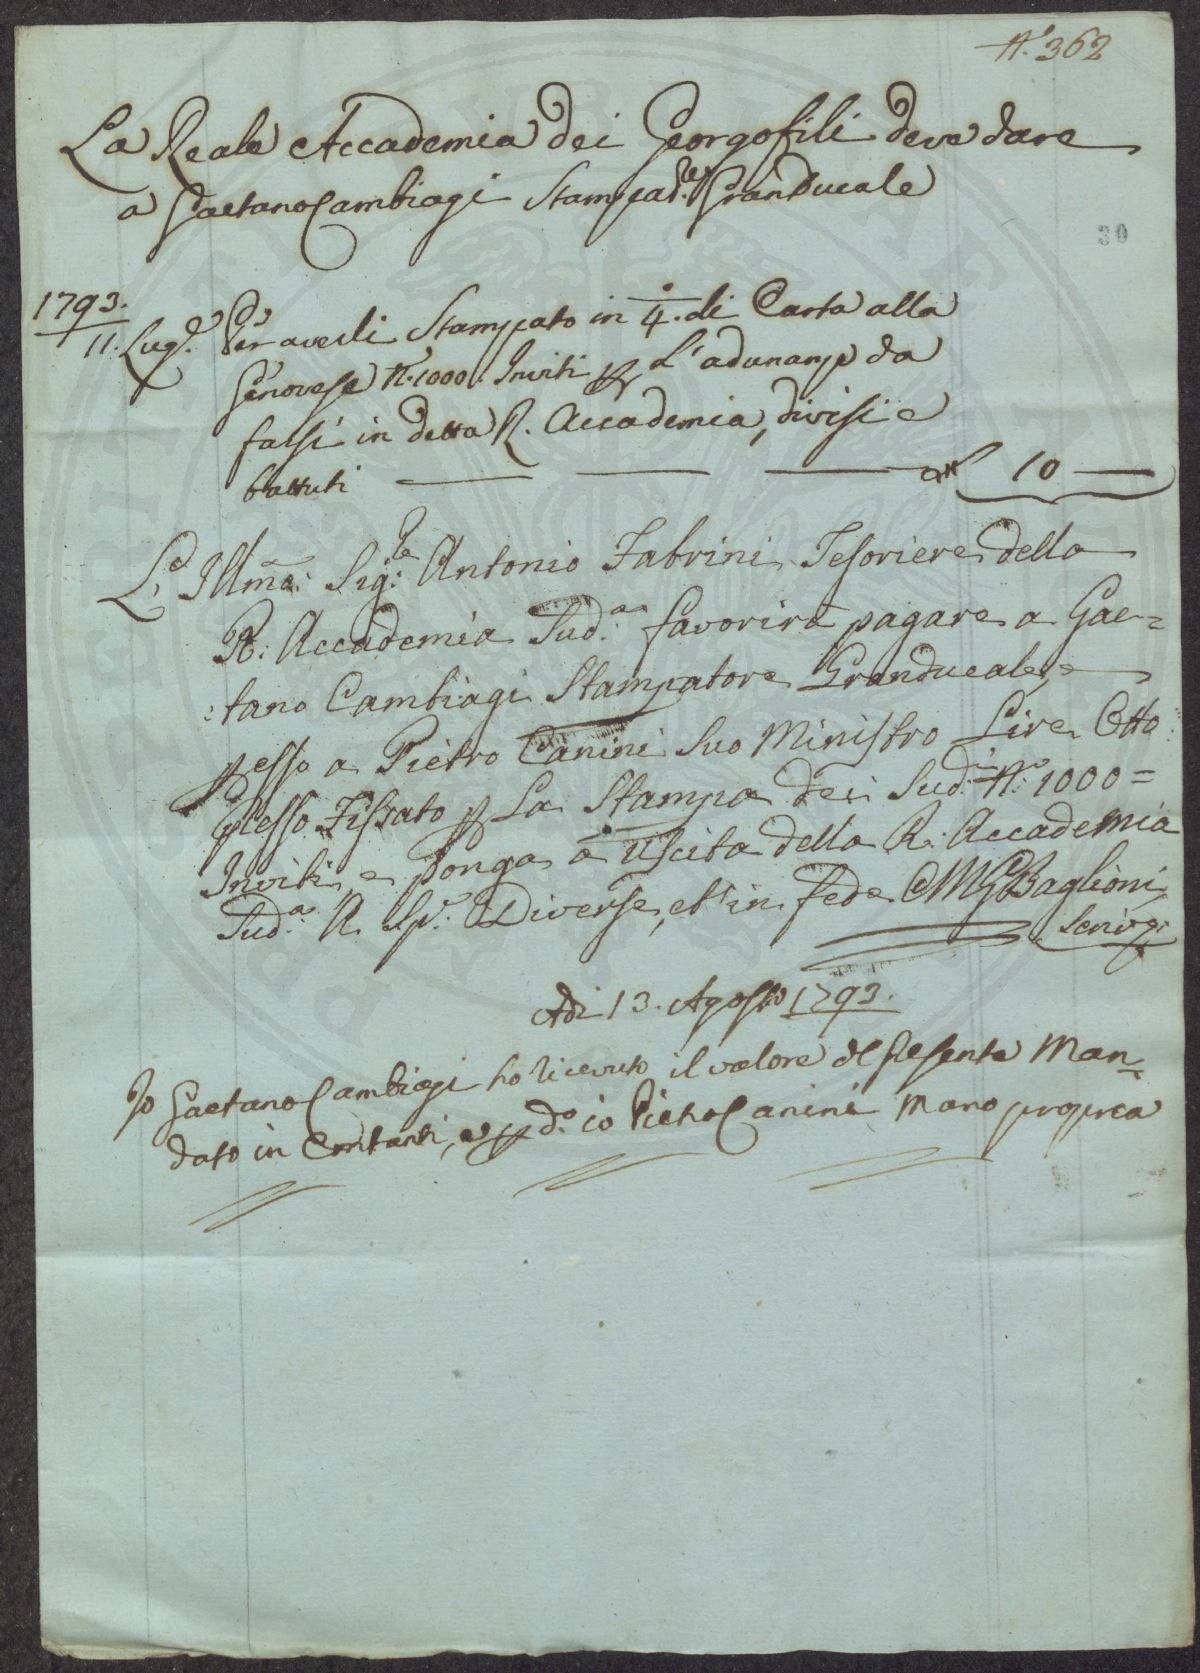 N.° 362
La Reale Accademia dei Georgofili deve dare
a Gaetano Cambiagi Stampat.re Granducale
30
1793.
11. Lug.° Per averli Stampato in 4.° di Carta alla
Genovese N.° 1000. Inviti p L'adunanze da
farsi in detta R. Accademia, divisi e
battuti — — — £ 10 —
L'Illmo: Sig.re Antonio Fabrini Tesoriere della
R: Accademia Sud.a favorirà pagare a Gae=
:tano Cambiagi Stampatore Granducale, e
p esso a Pietro Canini Suo Ministro Lire Otto
presso Fissato p La Stampa dei Sud.i N.° 1000=
Inviti e ponga a Uscita della R: Accademia
Sud.a A Sp.e Diverse, et in fede MGBaglioni
Adi 13. Agosto 1793.
Io Gaetano Cambiagi ho ricevuto il valore del presente Man-
dato in Contanti, e p d.° io Pietro Canini Mano propria